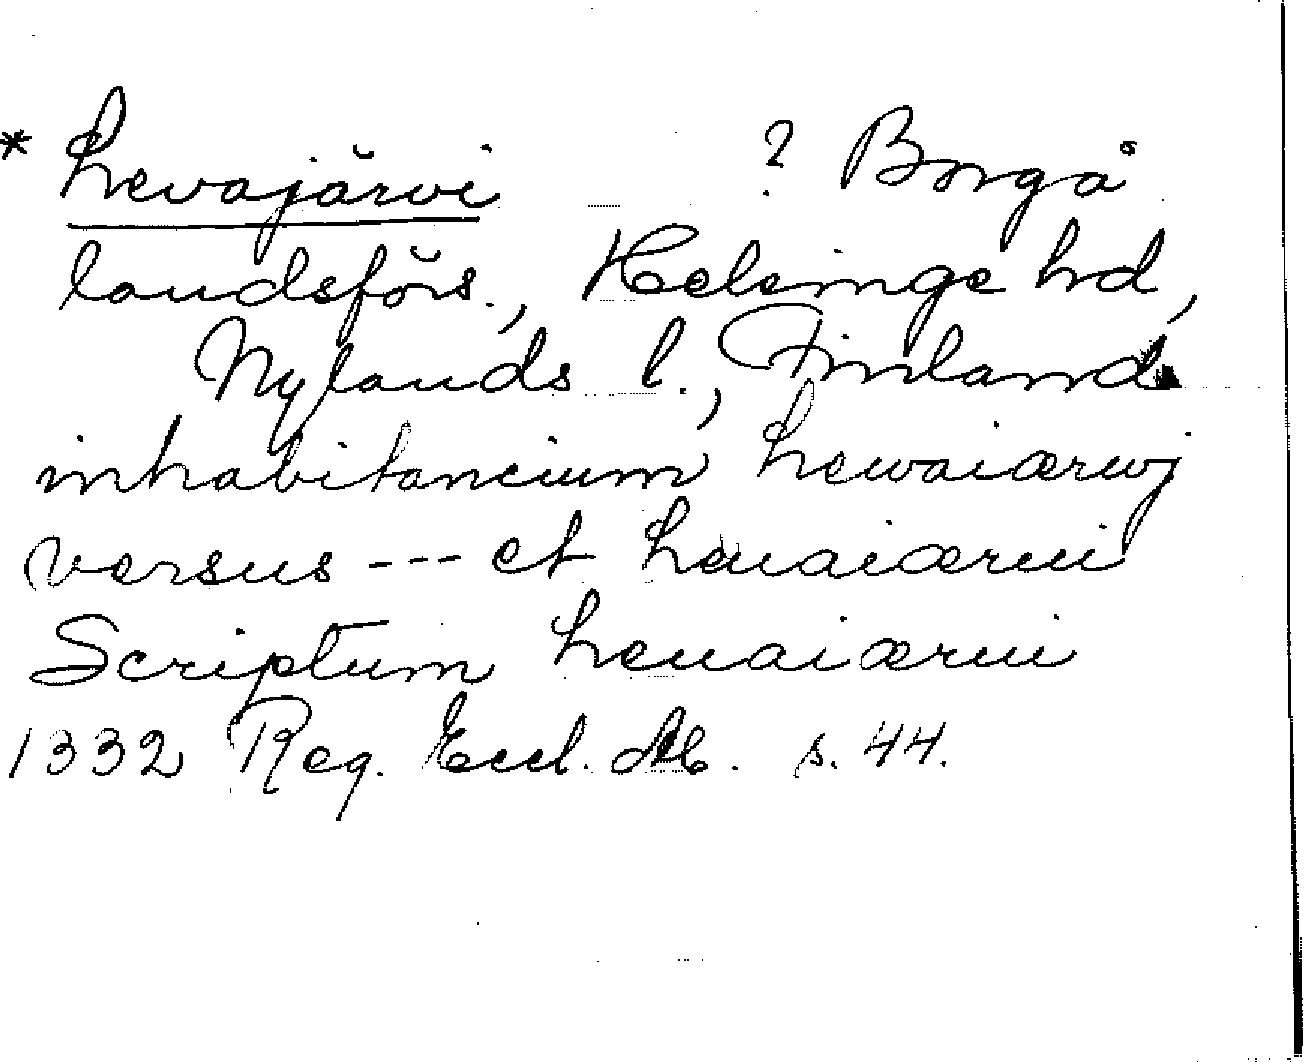 * Levajärvi ? Borgå
landsförs., Helsinge hd,
Nylands l., Finland
inhabitancium Lewaiærwj
versus --- et Leuaiærui
Scriptum Leuaiærui
1332 Reg. Eccl. Ab. s. 44.